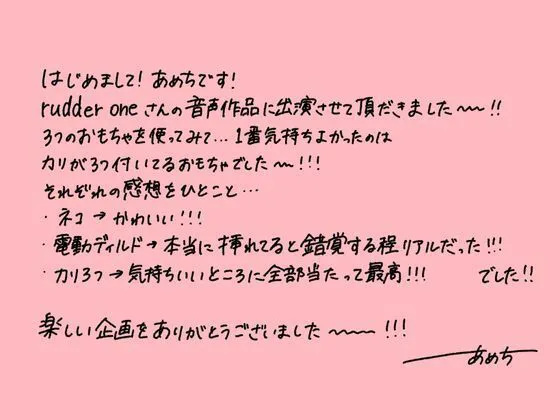 はじめまして! あめちです!
rudder oneさんの音声作品に出演させて頂だきました〜!!
3つのおもちゃを使ってみて…1番気持ちよかったのは
カリが3つ付いてるおもちゃでした〜!!!
それぞれの感想をひとこと…
・ネコ→かわいい!!!
・電動ディルド→本当に挿れてると錯覚する程リアルだった!!!
・カリ3つ→気持ちいいところに全部当たって最高!!! でした!!
楽しい企画をありがとうございました〜〜!!!
あめち